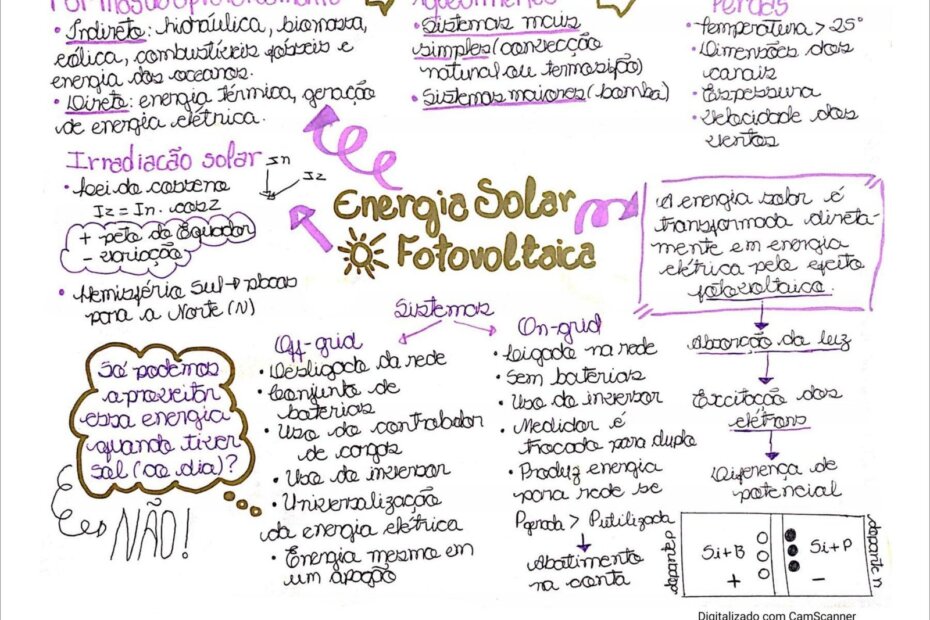 Formas de aproveitamento
• Indireto: hidráulica, biomassa,
eólica, combustíveis fósseis e
energia dos oceanos.
• Direto: energia térmica, geração
de energia elétrica.
Aquecimento
• Sistemas mais
simples (convecção
natural ou termosifão)
• Sistemas maiores (bomba)
Perdas
• Temperatura > 25°
• Dimensões dos
canais
• Espessura
• Velocidade dos
ventos
Irradiação solar
• Lei do cosseno
Iz = In . cosZ
In
Iz
+ perto do Equador
- variação
• Hemisfério Sul → placas
para a Norte (N)
Energia Solar
Fotovoltaica
A energia solar é
transformada direta-
mente em energia
elétrica pelo efeito
fotovoltaico.
Absorção da luz
Excitação dos
elétrons
Diferença de
potencial
dopante p
Si+B
+
Si+P
-
dopante n
Sistemas
Off-grid
• Desligada da rede
• Conjunto de
baterias
• Uso do controlador
de cargas
• Uso do inversor
• Universalização
da energia elétrica
• Energia mesmo em
um apagão
On-grid
• Ligada na rede
• Sem baterias
• Uso do inversor
• Medidor é
trocado para duplo
• Produz energia
para rede se
Pgerada > Putilizada
Abatimento
na conta
Só podemos
aproveitar
essa energia
quando tiver
sol (ao dia)?
NÃO!
Digitalizado com CamScanner